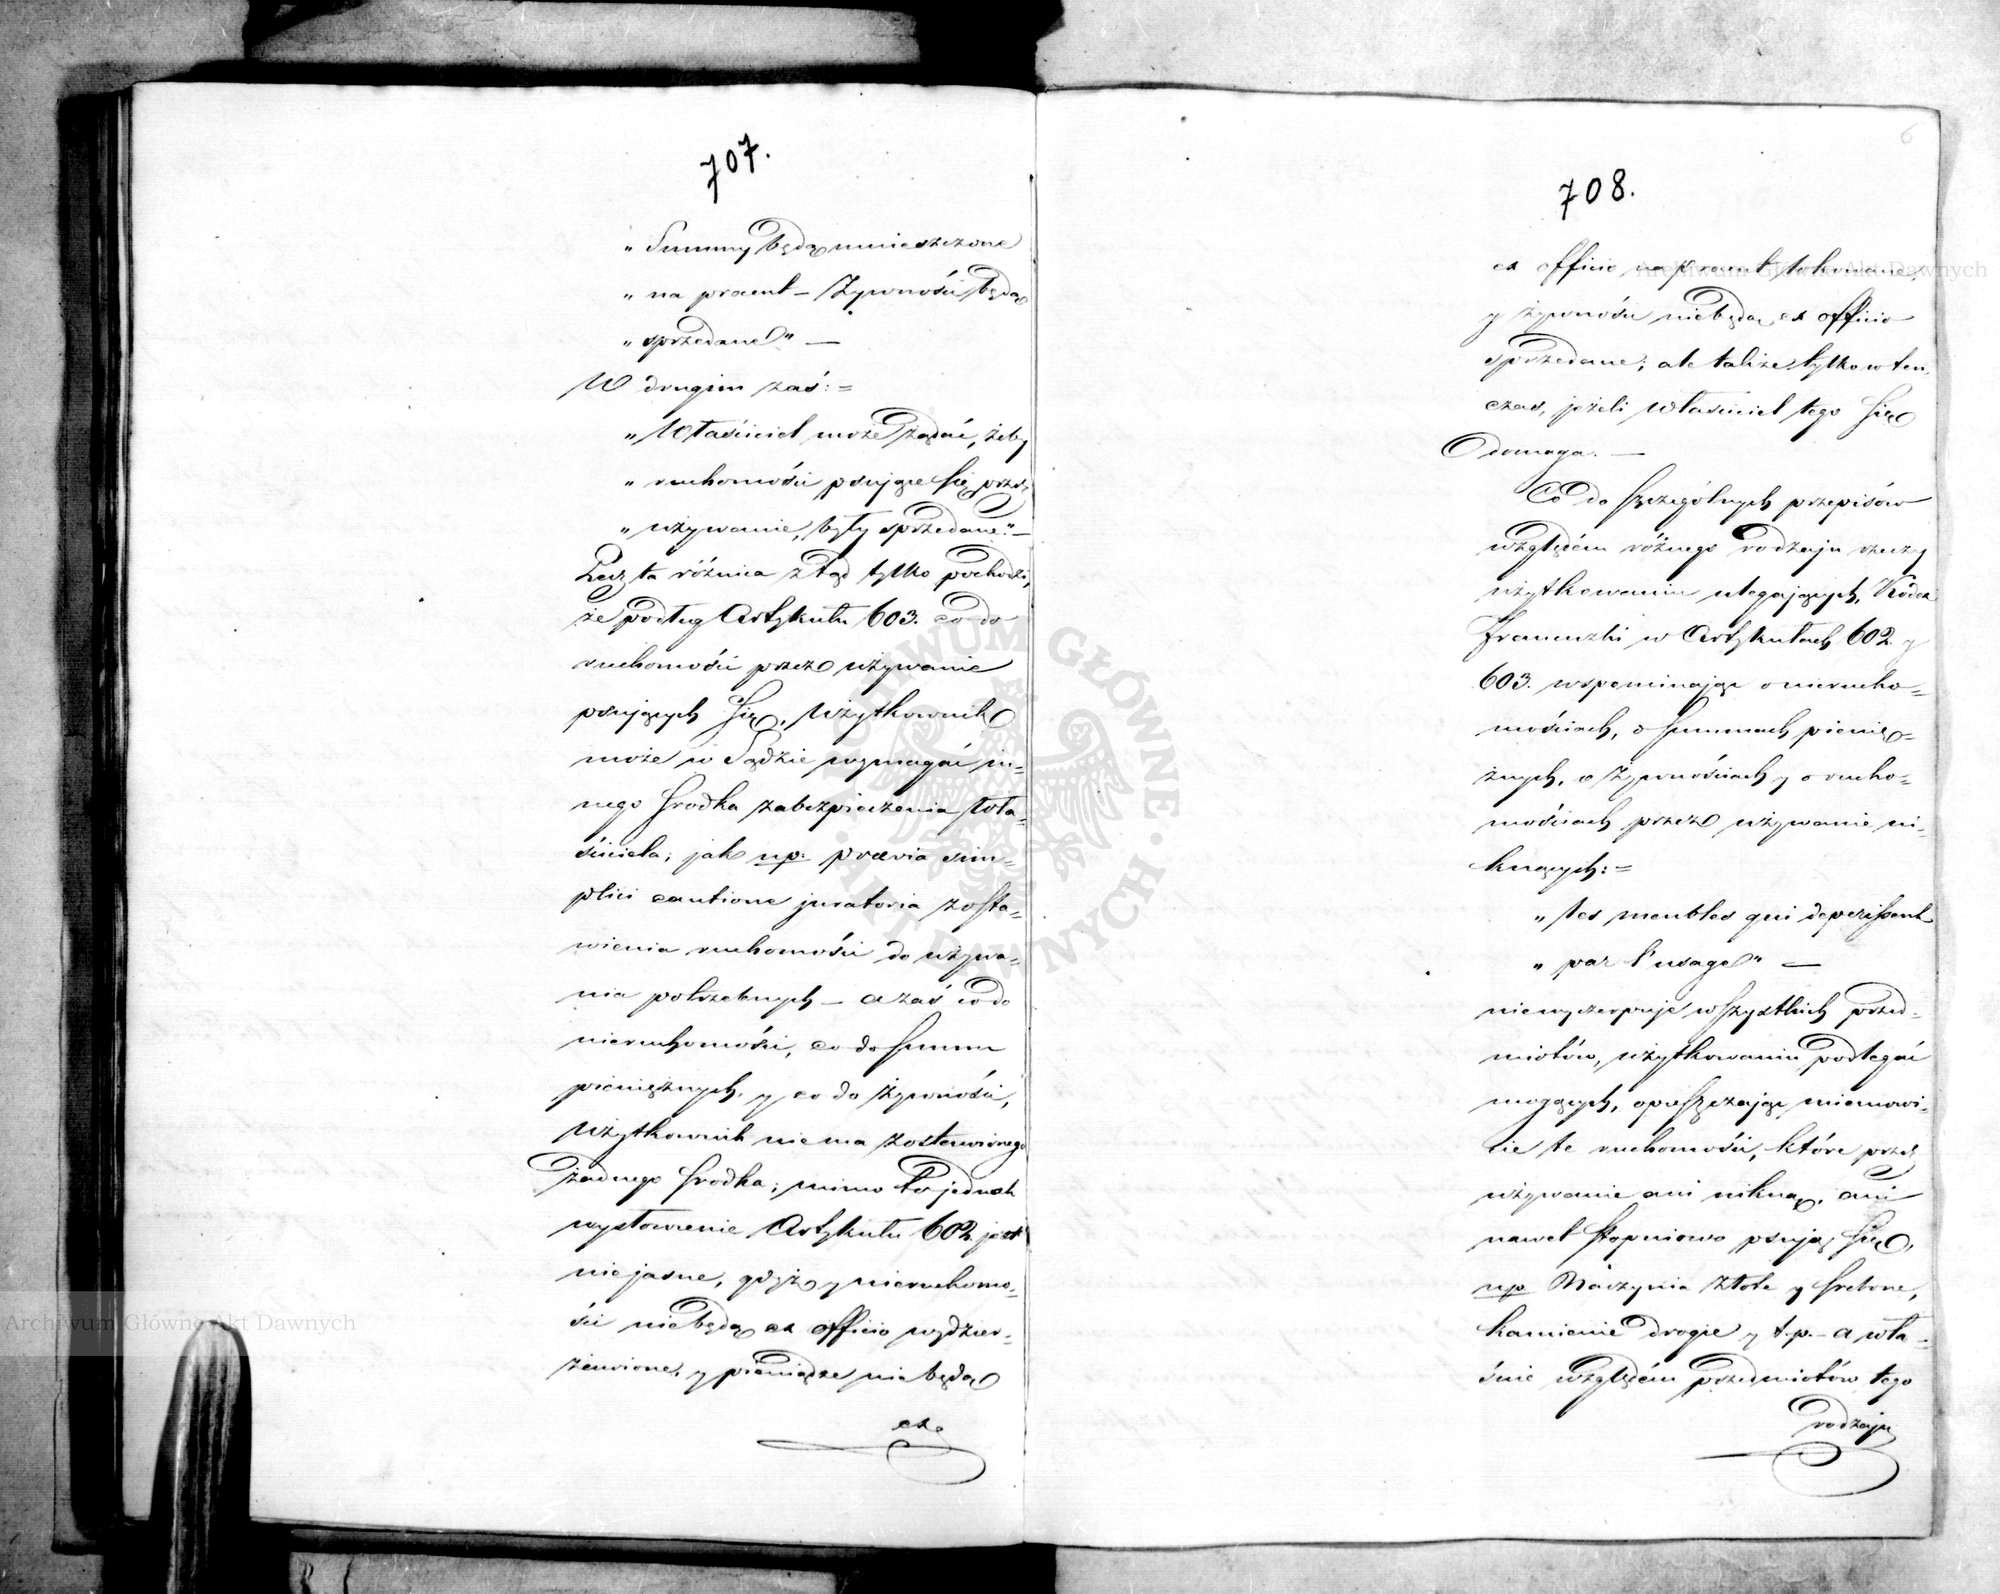 707.
„ Summy będą umieszczone
„ na procent – Żywności będą
„ sprzedane" —
W drugim zaś: =
„ Właściciel może żądać, żeby
„ ruchomości psujące się przez
„ używanie, były sprzedane." –
Lecz ta różnica ztąd tylko pochodzi,
że podług Artykułu 603. co do
ruchomości przez używanie
psujących się, Użytkownik
może w Sądzie wymagać in=
nego środka zabezpieczenia wła=
ściciela; jak np. prævia sim=
plici cautione juratoria zosta=
wienia ruchomości do używa=
nia potrzebnych – a zaś co do
nieruchomości, co do summ
pieniężnych, y co do żywności,
Użytkownik nie ma zostawionego
żadnego środka; mimo to jednak
wysłowienie Artykułu 602. jest
niejasne, gdyż y nieruchomo=
ści niebędą ex officio wydzier=
żawione, y pieniądze nie będą
ex
708.
6
ex officio na procent lokowane,
y żywności niebędą ex officio
sprzedane; ale także tylko w ten,
czas, jeżeli właściciel tego się
domaga. —
Co do szczególnych przepisów
względem różnego rodzaju rzeczy
użytkowaniu ulegających, Kodex
Francuzki w Artykułach 602. y
603. wspominając o nierucho=
mościach, o summach pienię=
żnych, o żywnościach y o rucho=
mościach przez używanie ni=
knących: =
„ les meubles qui deperissent
„ par l'usage" —
niewyczerpuje wszystkich przed=
miotów, użytkowaniu podlegać
mogących, opuszczając mianowi=
cie te ruchomości, które przez
używanie ani nikną, ani
nawet stopniowo psują się,
np. Naczynia złote y srebrne,
kamienie drogie y t.p. – a wła=
śnie względem przedmiotów tego
rodzaju
ARCHIWUM GŁÓWNE · AKT DAWNYCH ·
Archiwum Główne Akt Dawnych
Archiwum Główne Akt Dawnych